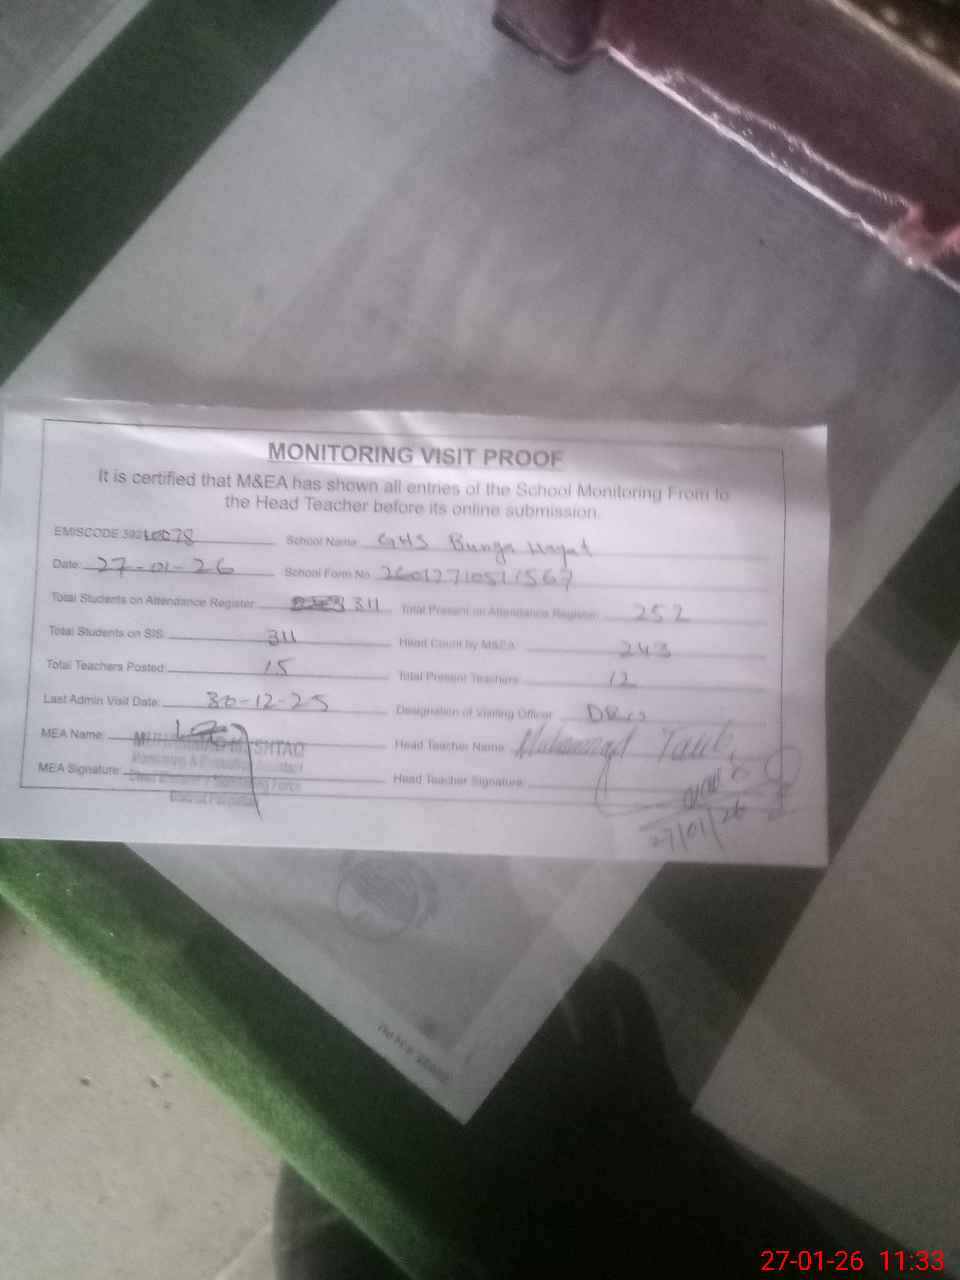 MONITORING VISIT PROOF
It is certified that M&EA has shown all entries of the School Monitoring From to
the Head Teacher before its online submission.
EMISCODE School Name: GHS Bunga Hayat
Date: 27-01-26 School Form No
Total Students on Attendance Register: 311 Total Present on Attendance Register: 252
Total Students on SIS: 311 Head Count by M&EA: 243
Total Teachers Posted: 15 Total Present Teachers: 12
Last Admin Visit Date: 30-12-25 Designation of Visiting Officer
MEA Name: Head Teacher Name: Muhammad
MEA Signature: Head Teacher Signature:
27/01/26
27-01-26 11:33